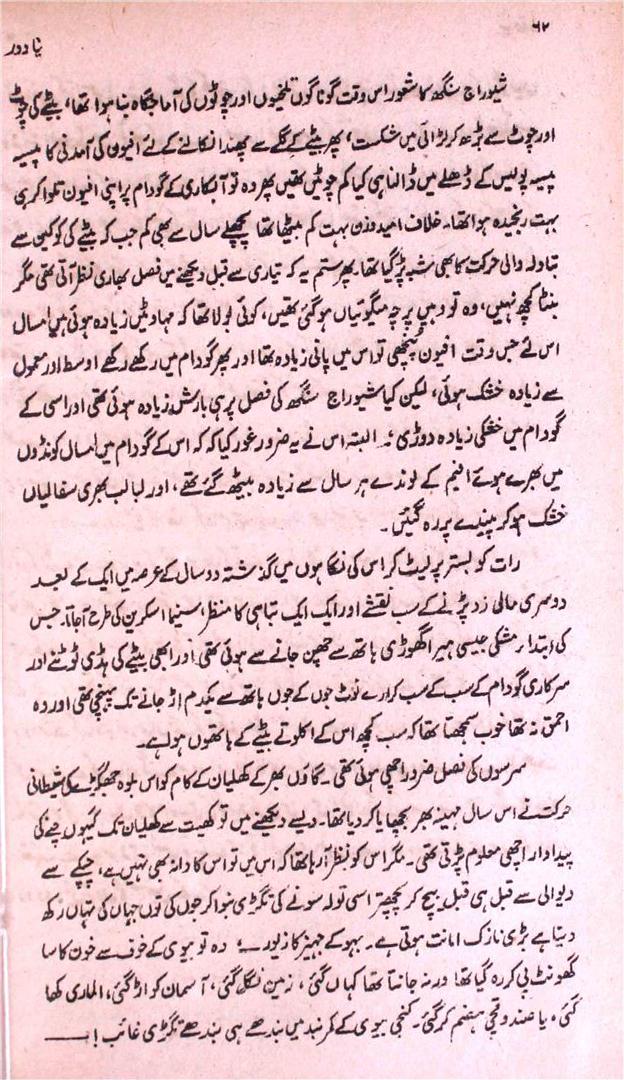 ۶۲
نیا دور
شیوراج سنگھ کا شعور اس وقت گوناگوں تلخیوں اور چوٹوں کی آماجگاہ بنا ہوا تھا، بیٹے کی چوٹ
اور چوٹ سے بڑھ کر لڑائی میں شکست، پھر بیٹے کے گلے سے پھندا نکالنے کے لئے افیون کی آمدنی کا پیسہ
پیسہ پولیس کے ڈھلے میں ڈالنا ہی کیا کم چوٹیں تھیں پھر وہ تو آبکاری کے گودام پر اپنی افیون تلوا کر ہی
بہت رنجیدہ ہوا تھا۔ خلاف امید وزن بہت کم بیٹھا تھا پچھلے سال سے بھی کم جب کہ بیٹے کی کوکین سے
تبادلہ والی حرکت کا بھی شبہ پڑ گیا تھا۔ پھر ستم یہ کہ تیاری سے قبل دیکھنے میں فصل بھاری نظر آتی تھی مگر
بنٹا کچھ نہیں، وہ تو وہیں پر چہ میگوئیاں ہو گئی تھیں، کوئی بولا تھا کہ مہاوٹیں زیادہ ہوئی ہیں امسال
اس لئے جس وقت افیون پنچھی تو اس میں پانی زیادہ تھا اور پھر گودام میں رکھے رکھے اوسط اور معمول
سے زیادہ خشک ہوئی، لیکن کیا شیوراج سنگھ کی فصل پر ہی بارش زیادہ ہوئی تھی اور اسی کے
گودام میں خشکی زیادہ دوڑی؟ البتہ اس نے یہ ضرور غور کیا کہ کہ اس کے گودام میں امسال کونڈوں
میں بھرے ہوئے افیم کے لوندے ہر سال سے زیادہ بیٹھ گئے تھے، اور لبالب بھری سفالیاں
خشک ہو کر پیندے پر رہ گئیں۔
رات کو بستر پر لیٹ کر اس کی نگاہوں میں گذشتہ دو سال کے عرصہ میں ایک کے بعد
دوسری مالی زد پڑنے کے سب نقشے اور ایک ایک تباہی کا منظر سنیما اسکرین کی طرح آجاتا۔ جس
کی ابتدا مشکی جیسی ہیرا گھوڑی ہاتھ سے چھن جانے سے ہوئی تھی اور ابھی بیٹے کی ہڈی ٹوٹنے اور
سرکاری گودام کے سب کے سب کرارے نوٹ جوں کے جوں ہاتھ سے یکدم اڑ جانے تک پہنچی تھی اور وہ
احمق نہ تھا خوب سمجھتا تھا کہ سب کچھ اس کے اکلوتے بیٹے کے ہاتھوں ہوا ہے۔
سرسوں کی فصل ضرور اچھی ہوئی تھی۔ گاؤں بھر کے کھلیان کے کام کو اس بلوہ جھگڑے کی شیطانی
حرکت نے اس سال مہینہ بھر پچھایا کر دیا تھا۔ ویسے دیکھنے میں تو کھیت سے کھلیان تک گیہوں چنے کی
پیداوار اچھی معلوم پڑتی تھی۔ مگر اس کو نظر آ رہا تھا کہ اس میں تو اس کا دانہ بھی نہیں ہے، چپکے سے
دیوالی سے قبل ہی قبل بیچ کر پچھتر اسی تولہ سونے کی تگڑی بنوا کر جوں کی توں جہاں کی تہاں رکھ
دینا ہے بڑی نازک امانت ہوتی ہے۔ بہو کے جہیز کا زیور۔ وہ تو بیوی کے خوف سے خون کا سا
گھونٹ پی کر رہ گیا تھا ورنہ جانتا تھا کہاں گئی، زمین نگل گئی، آسمان کو اڑ گئی، الماری کھا
گئی، یا صندوقچی ہضم کر گئی۔ کنجی بیوی کے کمر بند میں بندھے ہی بندھے تگڑی غائب!۔